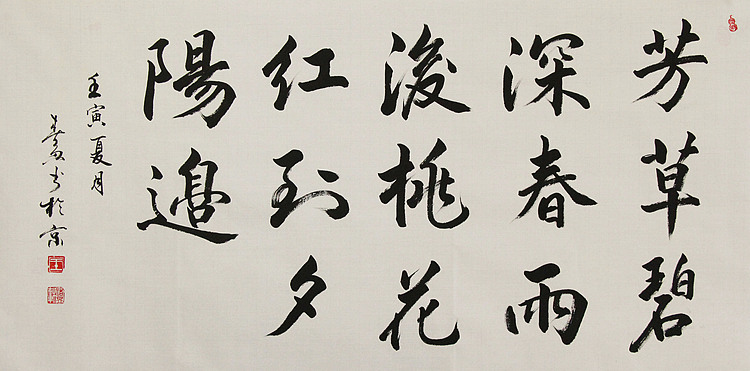 芳草碧
深春雨
後桃花
红到夕
陽邊
壬寅夏月
书於京